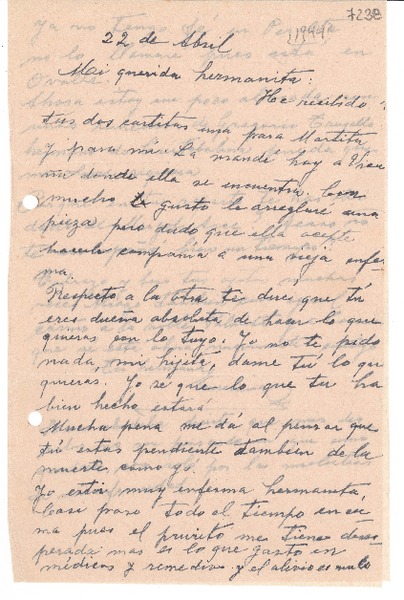 7238
1944
22 de Abril
Mi querida hermanita:
He recibido
tus dos cartitas una para Martita
y para mí. La mandé hoy a Vicu
ña donde ella se encuentra. Con
mucho gusto le arreglaré una
pieza pero dudo que ella acepte
hacerle compañia a una vieja enfer
ma.
Respecto a la otra te dire que tú
eres dueña absoluta de hacer lo que
quieras con lo tuyo. Yo no te pido
nada, mi hijita, dame tú lo que
quieras. Yo sé que lo que tu ha
bien hecho estará
Mucha pena me dá al pensar que
tú estas pendiente tambien de la
muerte como yo.
Yo estoi muy enferma hermanita,
Casi paso todo el tiempo en ca
ma pues el prurito me tiene deses
perada mas es lo que gasto en
médicos y remedios y el alivio es nulo